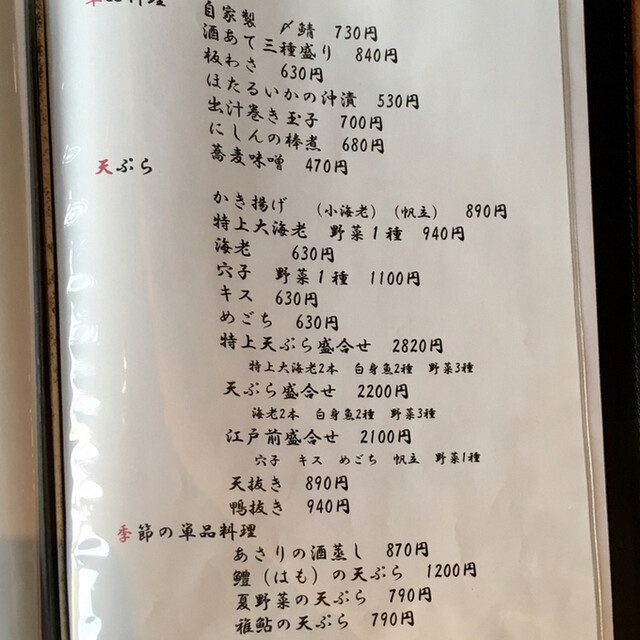 単品料理
自家製 〆鯖 730円
酒あて三種盛り 840円
板わさ 630円
ほたるいかの沖漬 530円
出汁巻き玉子 700円
にしんの棒煮 680円
蕎麦味噌 470円
天ぷら
かき揚げ (小海老) (帆立) 890円
特上大海老 野菜1種 940円
海老 630円
穴子 野菜1種 1100円
キス 630円
めごち 630円
特上天ぷら盛合せ 2820円
特上大海老2本 白身魚2種 野菜3種
天ぷら盛合せ 2200円
海老2本 白身魚2種 野菜3種
江戸前盛合せ 2100円
穴子 キス めごち 帆立 野菜1種
天抜き 890円
鴨抜き 940円
季節の単品料理
あさりの酒蒸し 870円
鱧(はも)の天ぷら 1200円
夏野菜の天ぷら 790円
稚鮎の天ぷら 790円